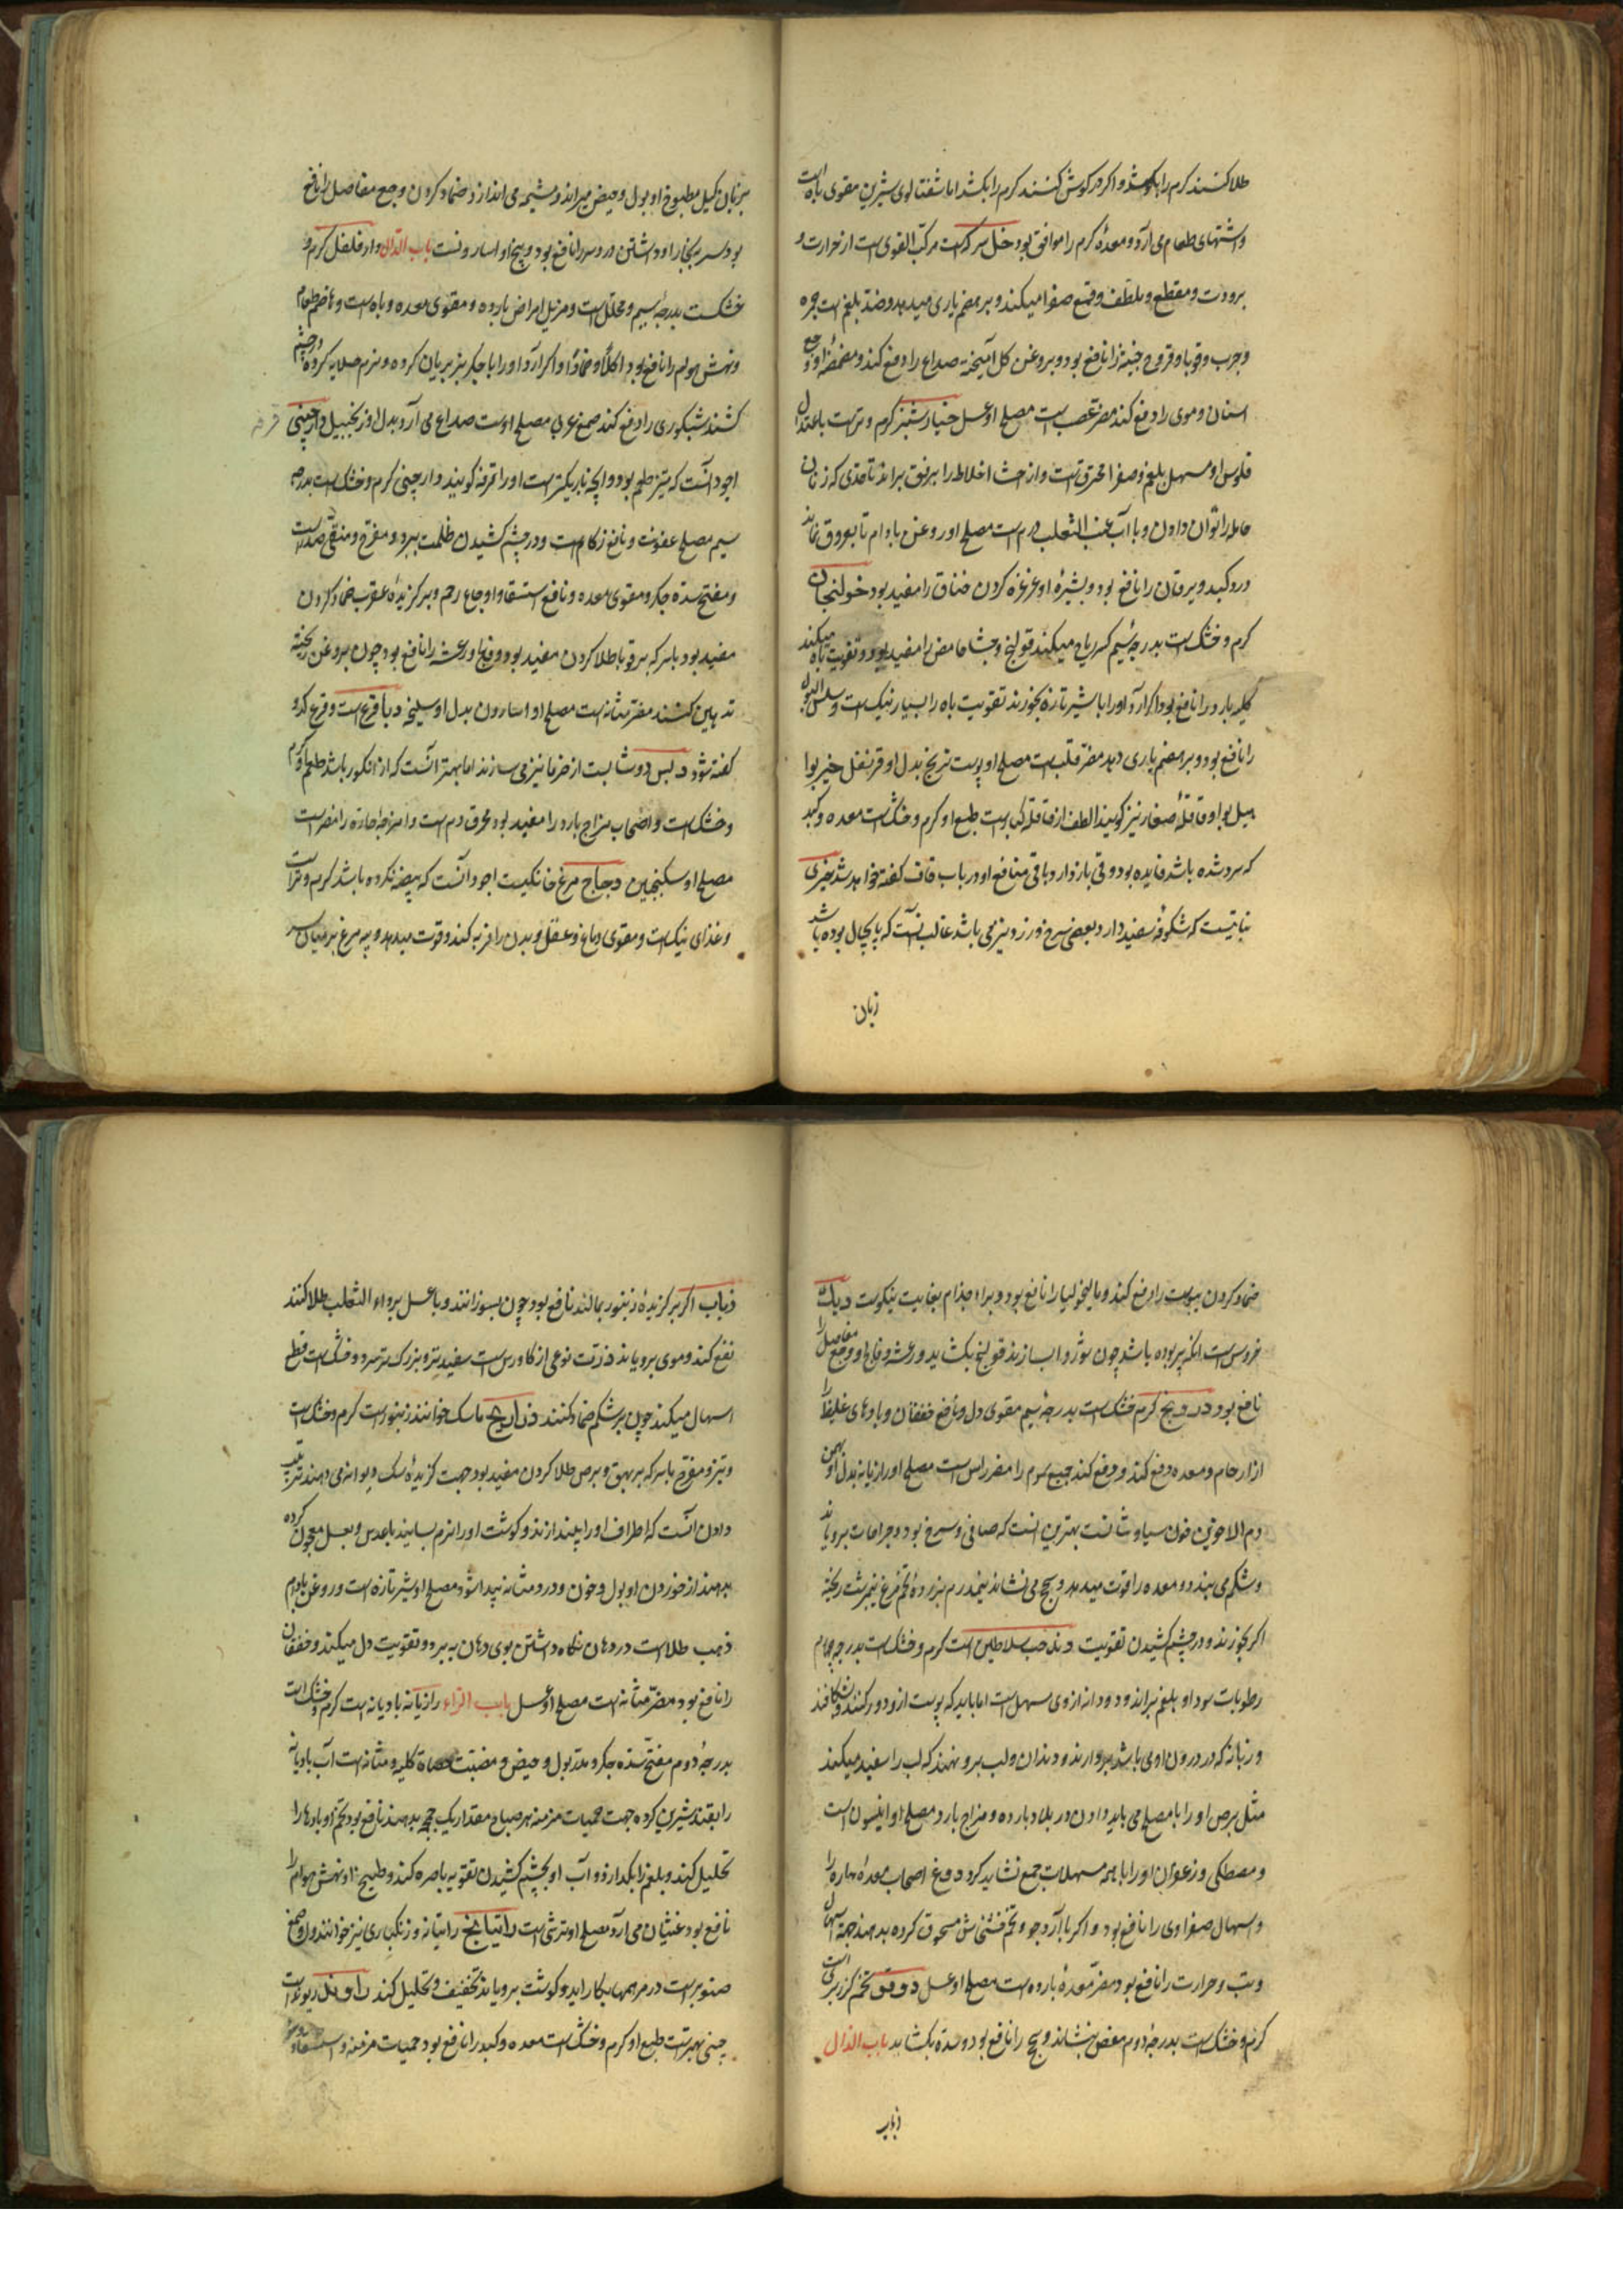 طلا کنند کرم را بکشد و اکر در کوش کنند کرم را بکشد اما شفتالوی شیرین مقوی باه است
و اشتهای طعام می آرد و معدهٔ کرم را موافق بود خل سرکه است مرکب القوی است از حرارت و
برودت و مقطع و ملطف و قمع صفرا میکند و بر هضم یاری میدهد و ضد بلغم است جمره
و جرب و قوبا و قروح خبیثه را نافع بود و بروغن کل آمیخته صداع را دفع کند و مضمضهٔ او وجع
اسنان و موی را دفع کند مضر عصب است مصلح او عسل خیار شنبر کرم و تر است باعتدال
فلوس او مسهل بلغم و صفرا محترق است و از احشا اخلاط را برفق براند تا حدی که زنان
حامله را توان دادن و با آب عنب الثعلب مصلح او روغن بادام تا بعروق نماند
درد کبد و یرقان را نافع بود و بشیره او غرغره کردن خناق را مفید بود خولنجان
کرم و خشک است بدرجهٔ سیم کسر ریاح میکند قولنج و جشا حامض را مفید بود و تقویت باه میکند
کلیه بارد را نافع بود و اکر آرد او را با شیر تازه بخورند تقویت باه را بسیار نیک است و سلس البول
را نافع بود و بر هضم یاری دهد مضر قلب است مصلح او پوست ترنج بدل او قرنفل خیربوا
هیل بوا و قاقلهٔ صغار نیز کویند الطف از قاقله کبار است طبع او کرم و خشک است معده و کبد
که سرد شده باشد فایده بود و قی باز دارد و باقی منافع او در باب قاف کفته خواهد شد خیری
نباتیست که شکوفهٔ سفید دارد و بعضی سرخ و زرد و نیز می باشد غالب آنست که پایچال بوده باشد
زبان
بر زبان کیل مطبوخ او بول و حیض میراند و مشیمه می اندازد و ضماد کردن وجع مفاصل را نافع
بود سر ببخار او داشتن درد سر را نافع بود و بیخ او اسارونست باب الدال دار فلفل کرم و
خشک است بدرجهٔ سیم و محلل است و مزیل امراض بارده و مقوی معده و باه است و هاضم طعام
و نهش هوام را نافع بود اکلاً و ضماداً و اکر آرد او را با جکر بز بریان کرده و نرم صلایه کرده در چشم
کشند شبکوری را دفع کند صمغ عربی مصلح اوست صداع می آرد بدل او زنجبیل دارچینی
اجود آنست که تیز طعم بود و آنچه باریکتر است او را قرفه کویند دارچینی کرم و خشک است بدرجهٔ
سیم مصلح عفونت و نافع زکام است و در چشم کشیدن ظلمت ببرد و مفرح و منقی صدر است
و مفتح سدهٔ جکر و مقوی معده و نافع استسقا و اوجاع رحم و بر کزیدهٔ عقرب ضماد کردن
مفید بود با سرکه بر قوبا طلا کردن مفید بود و فالج و رعشه را نافع بود چون بروغن ریخته
تدهین کنند مضر مثانه است مصلح او اسارون بدل او سلیخه دبا قرع است و قرع کدو
کفته شود دبس دوشابست از خرما نیز می سازند اما بهتر آنست که از انکور باشد طعم او کرم
و خشک است و اصحاب مزاج بارد را مفید بود محرق دم است و امزجهٔ حاره را مضر است
مصلح او سکنجبین دجاج مرغ خانکیست اجود آنست که بیضه نکرده باشد کرم و تر است
و غذای نیک است و مقوی دماغ و عقل و بدن را فربه کند و قوت میدهد و پیه مرغ بر میان سر
ضماد کردن یبوست را دفع کند و مالیخولیا را نافع بود و برای جذام بغایت نیکوست دیک
خروس است انکه پیر بوده باشد چون شوربا سازند قولنج بکشاید و رعشه و فالج و وجع مفاصل را
نافع بود درونج کرم خشک است بدرجهٔ سیم مقوی دل و نافع خفقان و بادهای غلیظ را
از ارحام و معده دفع کند و دفع کند جمیع سموم را مضر راس است مصلح او رازیانه بدل او بهمن
دم الاخوین خون سیاوشانست بهترین آنست که صافی و سرخ بود و جراحات برویاند
و شکم می بندد و معده را قوت میدهد و سحج می نشاند نیم درم بزردهٔ تخم مرغ نیمبرشت ریخته
اکر بخورند و در چشم کشیدن تقویت دند حب سلاطین است کرم و خشک است بدرجه چهارم
رطوبات سودا و بلغم براند و دو دانه از وی مسهل است اما باید که پوست از و دور کنند و بشکافند
و زبانه که در درون او می باشد بردارند و دندان و لب برو ننهند که لب را سفید میکند
مثل برص او را با مصلح می باید دادن در بلاد بارده و مزاج بارد مصلح او انیسون است
و مصطکی و زعفران او را با همه مسهلات جمع نشاید کرد دوغ اصحاب معدهٔ حاره را
و اسهال صفراوی را نافع بود و اکر با آرد جو و تخم خشخاش مسحوق کرده بدهند جهت اسهال
و تب و حرارت را نافع بود مضر معدهٔ بارده است مصلح او عسل دوقو تخم کزر بری است
کرم و خشک است بدرجهٔ دوم مغص بنشاند و سحج را نافع بود و سده بکشاید باب الذال
ذباب
ذباب اکر بر کزیدهٔ زنبور بمالند نافع بود چون بسوزانند و با عسل بر داء الثعلب طلا کنند
نفع کند و موی برویاند ذرت نوعی از کاورس است سفید تر و بزرک تر سرد و خشک است قطع
اسهال میکند چون بر شکم ضماد کنند ذراریح ماسک خوانند زنبور است کرم و خشک است
و تیز و مقرح با سرکه بر بهق و برص طلا کردن مفید بود جهت کزیدهٔ سک دیوانه می دهند ترتیب
دادن آنست که اطراف او را بیندازند و کوشت او را نرم بسایند با عدس و بعسل معجون کرده
بدهند از خوردن او بول و خون و درد مثانه پیدا شود مصلح او شیر تازه است و روغن بادام
ذهب طلا است در دهان نکاه داشتن بوی دهان ببرد و تقویت دل میکند و خفقان
را نافع بود مضر مثانه است مصلح او عسل باب الراء رازیانه بادیانه است کرم و خشک است
بدرجهٔ دوم مفتح سدهٔ جکر و مدر بول و حیض و مفتت حصاة کلیه و مثانه است آب بادیانه
را بقند شیرین کرده جهت حمیات مزمنه هر صباح مقدار یک چمچه بدهند نافع بود تخم او بادها را
تحلیل کند و بلغم را بکدازد و آب او بچشم کشیدن تقویه باصره کند و طبیخ او نهش هوام را
نافع بود غثیان می آرد مصلح او ترشی است راتیانج راتیانه و زنکباری نیز خوانند و او صمغ
صنوبر است در مرهمها بکار آید و کوشت برویاند تجفیف و تحلیل کند راوند ریوند است
چینی بهتر است طبع او کرم و خشک است معده و کبد را نافع بود حمیات مزمنه و استسقا و